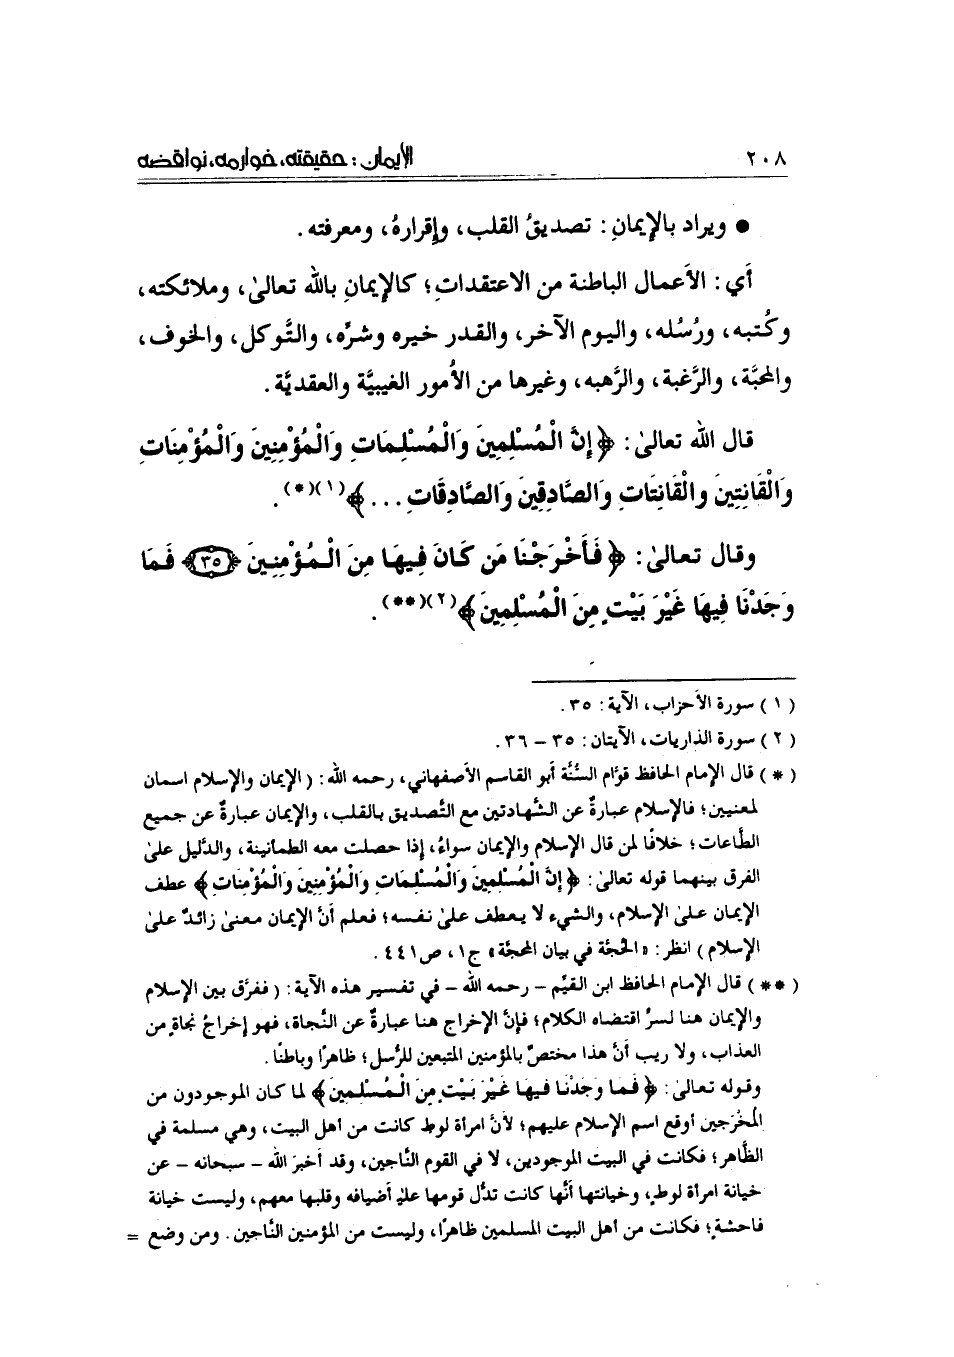 ٢٠٨
الإيمان: حقيقته، خوارمه، نواقضه
● ويراد بالإيمانِ: تصديقُ القلب، وإقرارهُ، ومعرفته.
أي: الأعمال الباطنة من الاعتقداتِ؛ كالإيمانِ بالله تعالىٰ، وملائكته،
وكُتبه، ورُسُله، واليوم الآخر، والقدر خيره وشرِّه، والتَّوكل، والخوف،
والمحبَّة، والرَّغبة، والرَّهبه، وغيرها من الأُمور الغيبيَّة والعقديَّة.
قال الله تعالىٰ: ﴿إِنَّ الْمُسْلِمِينَ وَالْمُسْلِمَاتِ وَالْمُؤْمِنِينَ وَالْمُؤْمِنَاتِ
وَالْقَانِتِينَ والْقَانِتَاتِ وَالصَّادِقِينَ وَالصَّادِقَاتِ...﴾(١)(*).
وقال تعالىٰ: ﴿فَأَخْرَجْنَا مَن كَانَ فِيهَا مِنَ الْمُؤْمِنِينَ ﴿٣٥﴾ فَمَا
وَجَدْنَا فِيهَا غَيْرَ بَيْتٍ مِنَ الْمُسْلِمِينَ﴾(٢)(**).
(١) سورة الأحزاب، الآية: ٣٥.
(٢) سورة الذاريات، الآيتان: ٣٥ – ٣٦.
(*) قال الإمام الحافظ قوَّام السُّنَّة أبو القاسم الأصفهاني، رحمه الله: (الإيمان والإسلام اسمان
لمعنيين؛ فالإسلام عبارةٌ عن الشَّهادتين مع التَّصديق بالقلب، والإيمان عبارةٌ عن جميع
الطَّاعات؛ خلافًا لمن قال الإسلام والإيمان سواءٌ، إذا حصلت معه الطمانينة، والدَّليل علىٰ
الفرق بينهما قوله تعالىٰ: ﴿إِنَّ الْمُسْلِمِينَ وَالْمُسْلِمَاتِ وَالْمُؤْمِنِينَ وَالْمُؤْمِنَاتِ﴾ عطف
الإيمان علىٰ الإسلام، والشيء لا يعطف علىٰ نفسه؛ فعلم أنَّ الإيمان معنىٰ زائدٌ علىٰ
الإسلام) انظر: «الحجَّة في بيان المحجَّة» ج١، ص٤٤١.
(**) قال الإمام الحافظ ابن القيِّم – رحمه الله – في تفسير هذه الآية: (ففرَّق بين الإسلام
والإيمان هنا لسرٍّ اقتضاه الكلام؛ فإنَّ الإخراج هنا عبارةٌ عن النَّجاة، فهو إخراجُ نجاةٍ من
العذاب، ولا ريب أنَّ هذا مختصٌّ بالمؤمنين المتبعين للرُّسل؛ ظاهرًا وباطنًا.
وقوله تعالىٰ: ﴿فَمَا وَجَدْنَا فِيهَا غَيْرَ بَيْتٍ مِنَ الْمُسْلِمِينَ﴾ لما كان الموجودون من
المُخْرَجين أوقع اسم الإسلام عليهم؛ لأنَّ امرأة لوط كانت من أهل البيت، وهي مسلمة في
الظَّاهر؛ فكانت في البيت الموجودين، لا في القوم النَّاجين، وقد أخبرَ الله – سبحانه – عن
خيانة امرأة لوطٍ، وخيانتها أنَّها كانت تدُّل قومها علىٰ أضيافه وقلبها معهم، وليست خيانة
فاحشةٍ؛ فكانت من أهل البيت المسلمين ظاهرًا، وليست من المؤمنين النَّاجين. ومن وضع =